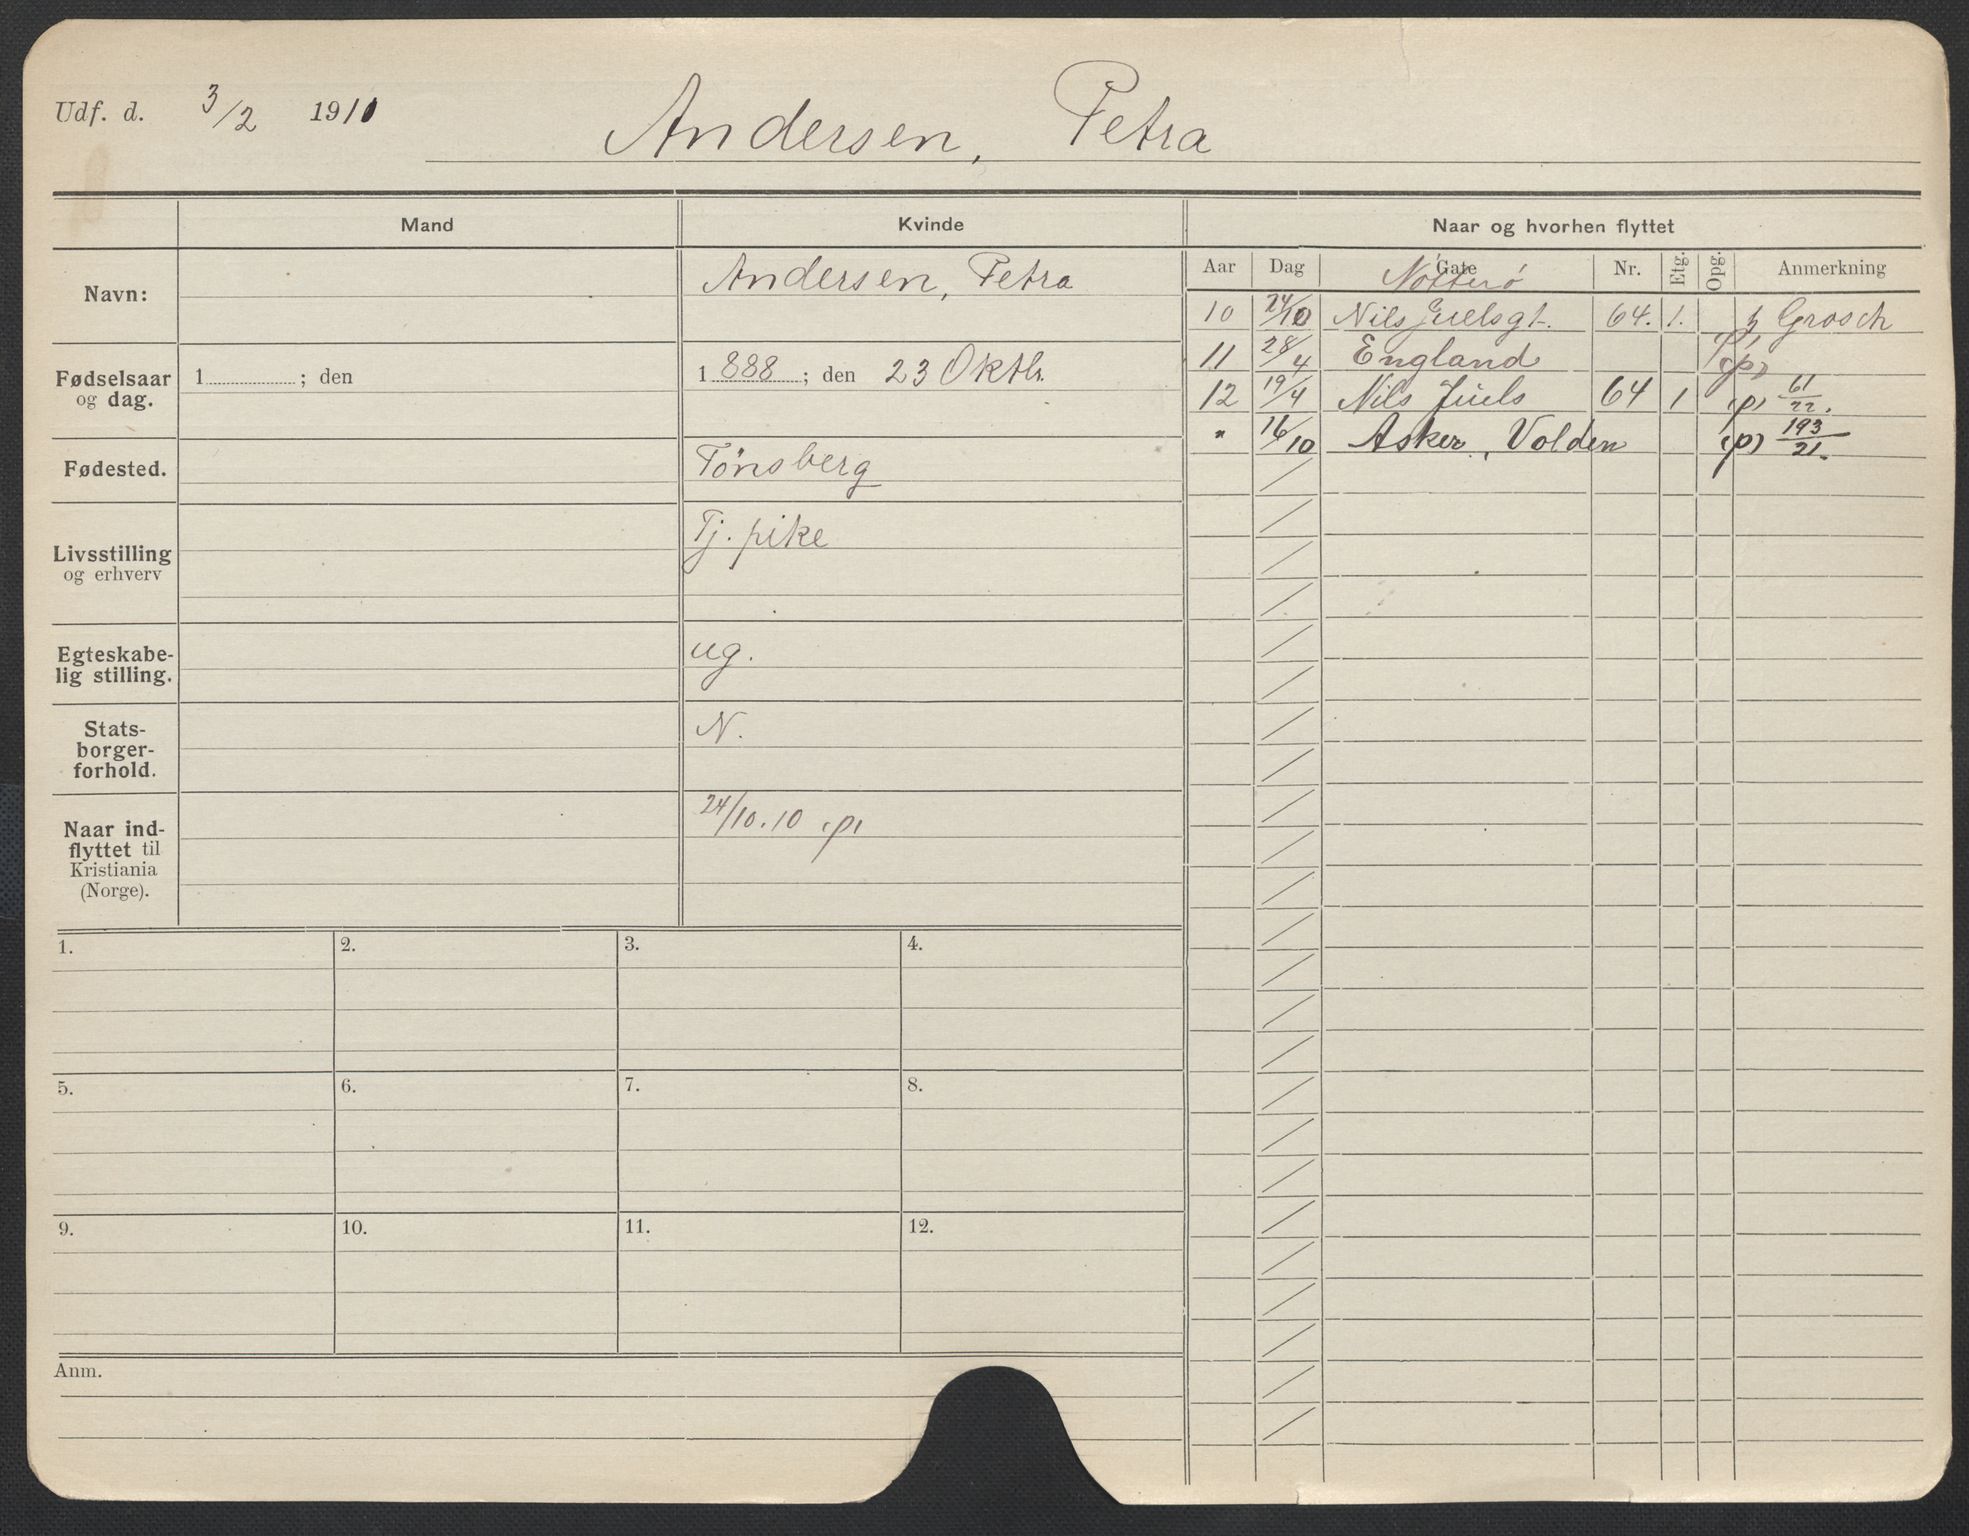 Udf. d. 3/2 1911 Andersen, Petra
Mand Kvinde Naar og hvorhen flyttet
Navn: Andersen, Petra
Fødselsaar og dag. 1 ; den 1888 ; den 23 Oktbr.
Fødested. Tönsberg
Livsstilling og erhverv Tj. pike
Egteskabe-
lig stilling. ug.
Stats-
borger-
forhold. N.
Naar ind-
flyttet til
Kristiania
(Norge). 24/10.10 (p)
Aar Dag Gate Nr. Etg. Opg. Anmerkning
Nötterö
10 24/10 Nils Juelsgt. 64. 1. Grosch
11 28/4 England (p)
12 19/4 Nils Juels 64 1 (p) 61/22.
" 16/10 Asker, Volden (p) 193/21.
1. 2. 3. 4.
5. 6. 7. 8.
9. 10. 11. 12.
Anm.